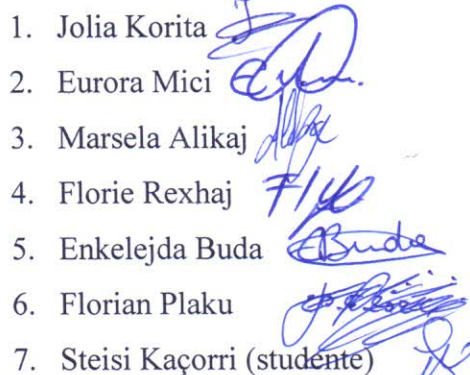 1. Jolia Korita
2. Eurora Mici
3. Marsela Alikaj
4. Florie Rexhaj
5. Enkelejda Buda EBuda
6. Florian Plaku
7. Steisi Kaçorri (studente)